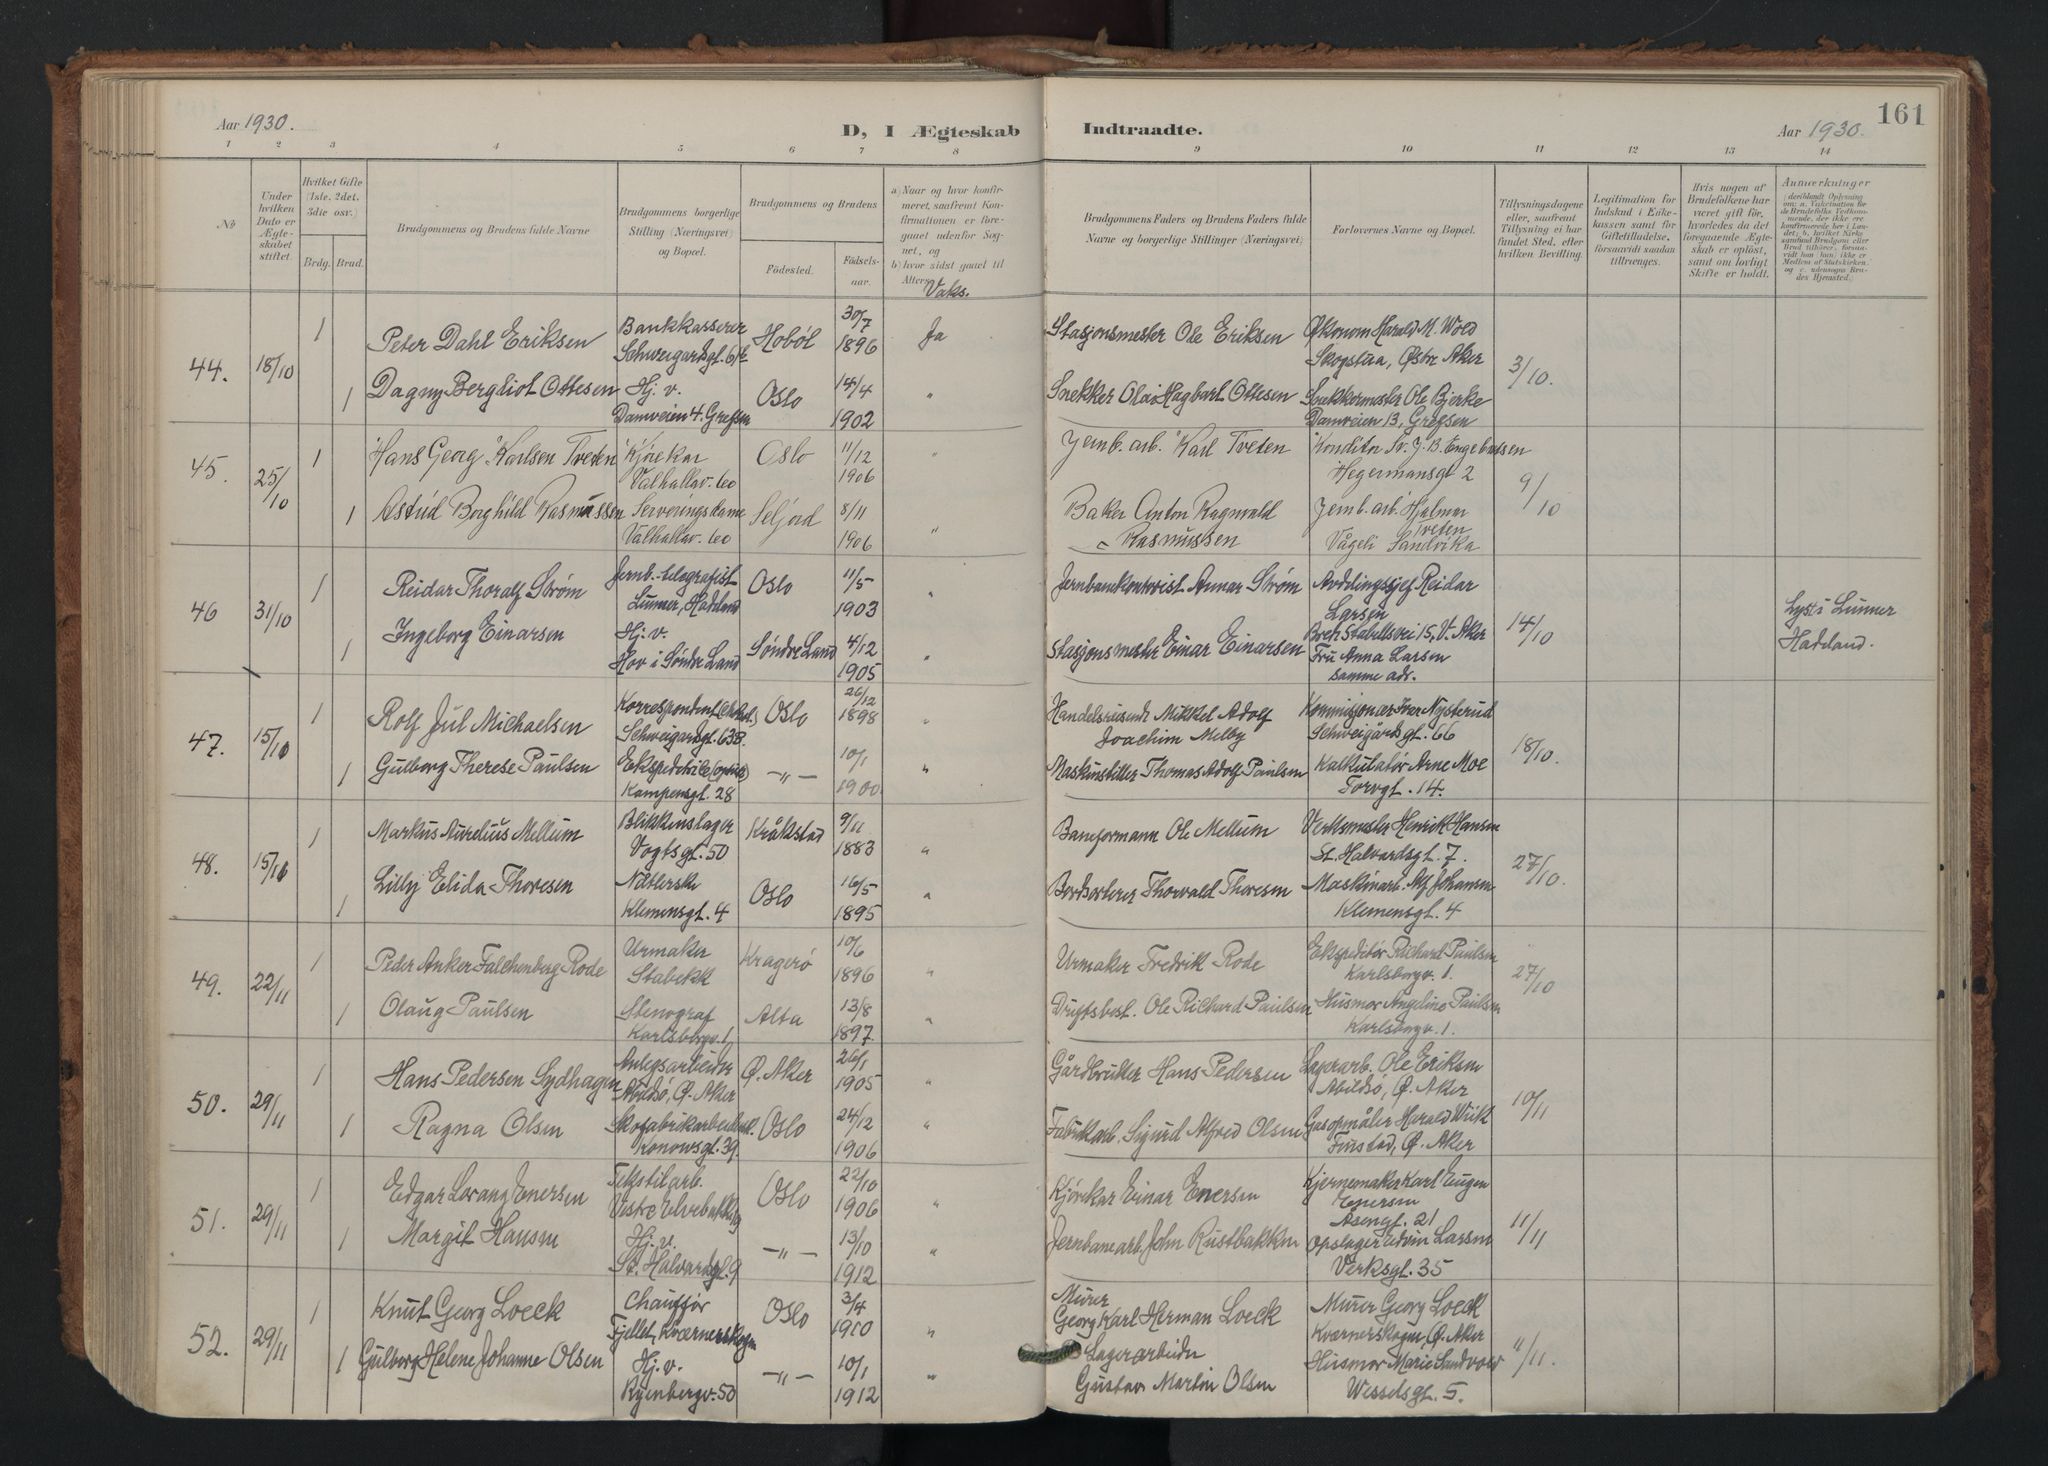 161
Aar 1930.
D, I Ægteskab Indtraadte.
Aar 1930.
1 2 3 4 5 6 7 8 9 10 11 12 13 14
No
Under hvilken Dato er Ægteskabet stiftet.
Hvilket Gifte (1ste, 2det, 3die osv.)
Brdg. Brud.
Brudgommens og Brudens fulde Navne
Brudgommens borgerlige Stilling (Næringsvei) og Bopæl.
Brudgommens og Brudens
Fødested. Fødselsaar.
a) Naar og hvor konfirmeret, saafremt Konfirmationen er foregaaet udenfor Sognet, og
b) hvor sidst gaaet til Alters.
Vaks.
Brudgommens Faders og Brudens Faders fulde Navne og borgerlige Stillinger (Næringsvei)
Forlovernes Navne og Bopæl.
Tillysningsdagene eller, saafremt Tillysning ei har fundet Sted, efter hvilken Bevilling.
Legitimation for Indskud i Enkekassen samt for Giftetilladelse, forsaavidt saadan tiltrænges.
Hvis nogen af Brudefolkene har været gift før, hvorledes da det foregaaende Ægteskab er opløst, samt om lovligt Skifte er holdt.
Anmærkninger
44. 18/10
1 Peter Dahl Eriksen Bankkasserer Schweigaardsgt. Hobøl 30/7 1896 Ja Stasjonsmester Ole Eriksen Økonom Harald M. Wold Skogstua, Østre Aker 3/10.
1 Dagny Bergliot Ottesen Hj. v. Damveien 4. Grefsen Oslo 14/4 1902 " Snekker Olai Hagbart Ottesen Snekkermester Ole Bjerke Damveien 13, Grefsen
45. 25/10
1 Hans Georg Karlsen Tveten Kjørekar Valhallav. 60 Oslo 11/12 1906 " Jernb. arb. Karl Tveten Konditor Sv. J. B. Engebretsen Hegermansgt 2 9/10
1 Astrid Borghild Rasmussen Serveringsdame Valhallav. 60 Seljord 8/11 1906 " Baker Anton Ragnvald Rasmussen Jernb. arb. Hjalmar Tveten Vågeli Sandvika
46 31/10
1 Reidar Thoralf Strøm Jernb.-telegrafist Lunner, Hadeland Oslo 11/5 1903 " Jernbanekontorist Annar Strøm Avdelingssjef Reidar Larsen Breh Stabellsvei 15, V. Aker 14/10 Lyst i Lunner Hadeland.
1 Ingeborg Einarsen Hj. v. Hov i Søndre Land Søndre Land 4/12 1905 " Stasjonsmester Einar Einarsen Fru Anna Larsen samme adr.
47. 15/10
1 Rolf Jul Michaelsen Korrespondent Schweigaardsgt. 63B. Oslo 26/12 1898 " Handelsreisende Mikkel Adolf Joachim Melby Kommisjonær Iver Nysterud Schweigårdsgt. 66 18/10.
1 Gulborg Therese Paulsen Ekspeditrice Kampensgt. 28 —"— 10/1 1900 " Maskinstiller Thomas Adolf Paulsen Kalkulatør Arne Moe Torvgt. 14.
48. 15/10
1 Markus Aurelius Mellum Blikkenslager Vogtsgt. 50 Kråkstad 9/11 1883 " Baneformann Ole Mellum Verksmester Henrik Hansen St. Halvardsgt. 7. 27/10.
1 Lilly Elida Thoresen Nåtlerske Klemensgt. 4 Oslo 16/5 1895 " Bordsorterer Thorvald Thoresen Maskinarb. Alf Johansen Klemensgt. 4
49. 22/11
1 Peder Anker Falchenberg Rode Urmaker Stabekk Kragerø 10/6 1896 " Urmaker Fredrik Rode Ekspeditør Richard Paulsen Karlsborgv. 1. 27/10
1 Olaug Paulsen Stenograf Karlsborgv. 1 Alta 13/8 1897. " Driftsbest. Ole Richard Paulsen Husmor Angeline Paulsen Karlsborgv. 1.
50. 29/11
1 Hans Pedersen Sydhagen Anlegsarbeider Abildsø, Ø. Aker Ø. Aker 26/1 1905 " Gårdbruker Hans Pedersen Lagerarb. Ole Eriksen Abildsø, Ø. Aker 10/11
1 Ragna Olsen Skofabrikarbeiderske. Konowsgt. 39. Oslo 24/12 1906 " Fabrikarb. Sigurd Alfred Olsen Gasopmåler Harald Wiik Finstad, Ø. Aker
51. 29/11
1 Edgar Lorang Enersen Tekstilarb. Vestre Elvebakke Oslo 22/10 1906 " Kjørekar Einar Enersen Kjernemaker Karl Eugen Enersen Åsengt. 21 11/11
1 Margit Hansen Hj. v. St. Halvardsgt. 9 —"— 13/10 1912 " Jernbanearb. John Rustbakken Opslager Edvin Larsen Verksgt. 35
52. 29/11
1 Knut Georg Loeck Chauffør Fjellet, Kværnerskogen Oslo 3/4 1910 " Murer Georg Karl Herman Loeck Murer Georg Loeck Kværnerskogen, Ø. Aker 11/11.
1 Gulborg Helene Johanne Olsen Hj. v. Ryenbergv. 50 —"— 10/1 1912 " Lagerarbeider Gustav Martin Olsen Husmor Marie Sandvold Wesselsgt. 5.